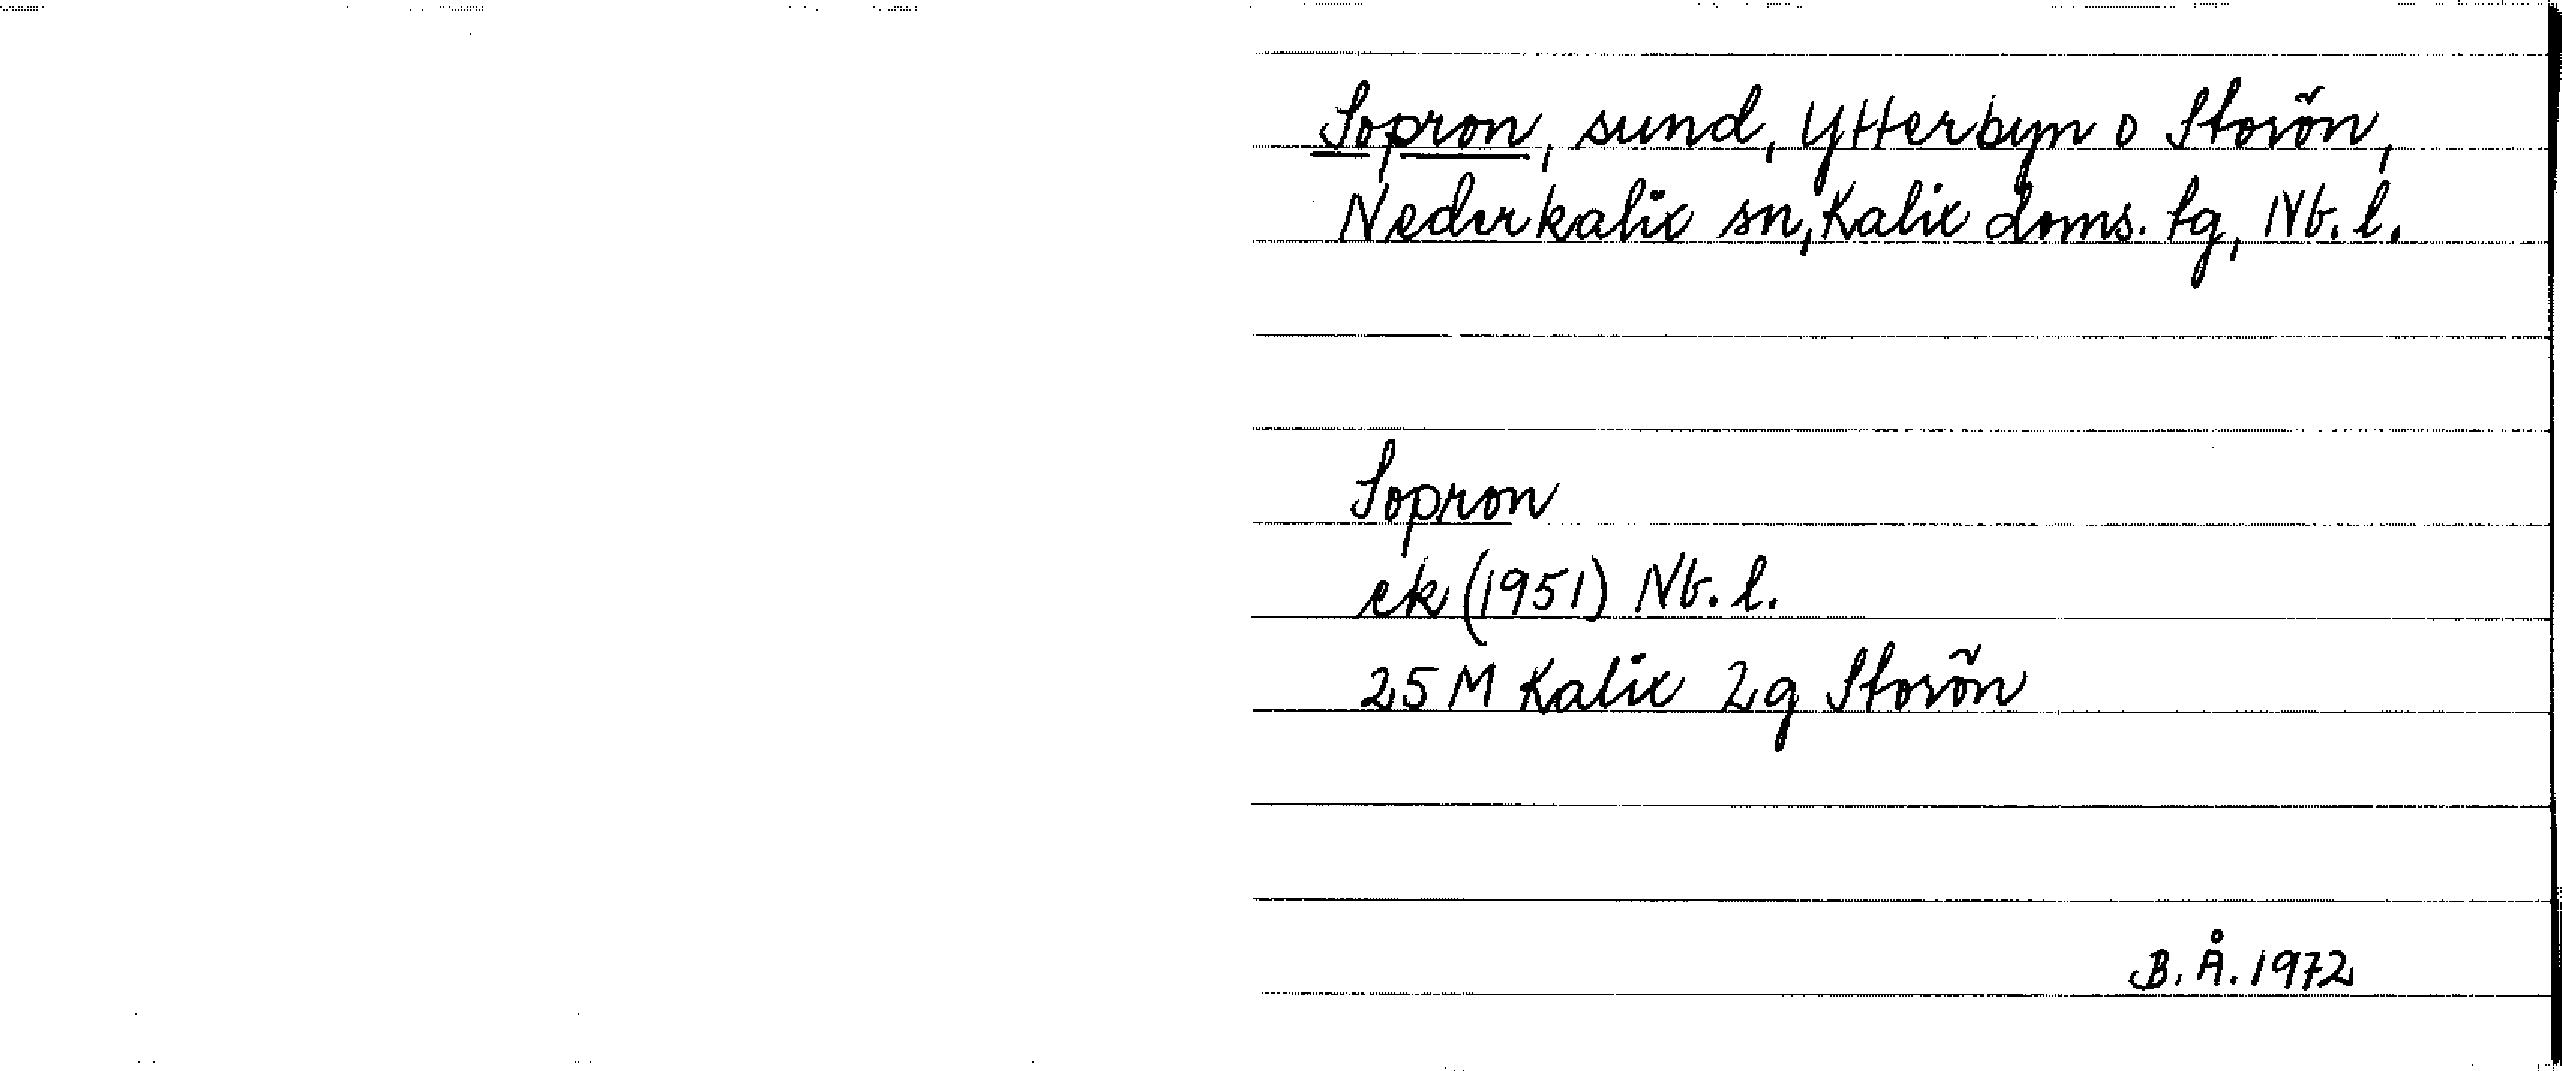 Sopron, sund, Ytterbyn o Storön,
Nederkalix sn, Kalix doms. tg, Nb. l.
Sopron
ek (1951) Nb. l.
25 M Kalix 2g Storön
B. Å. 1972